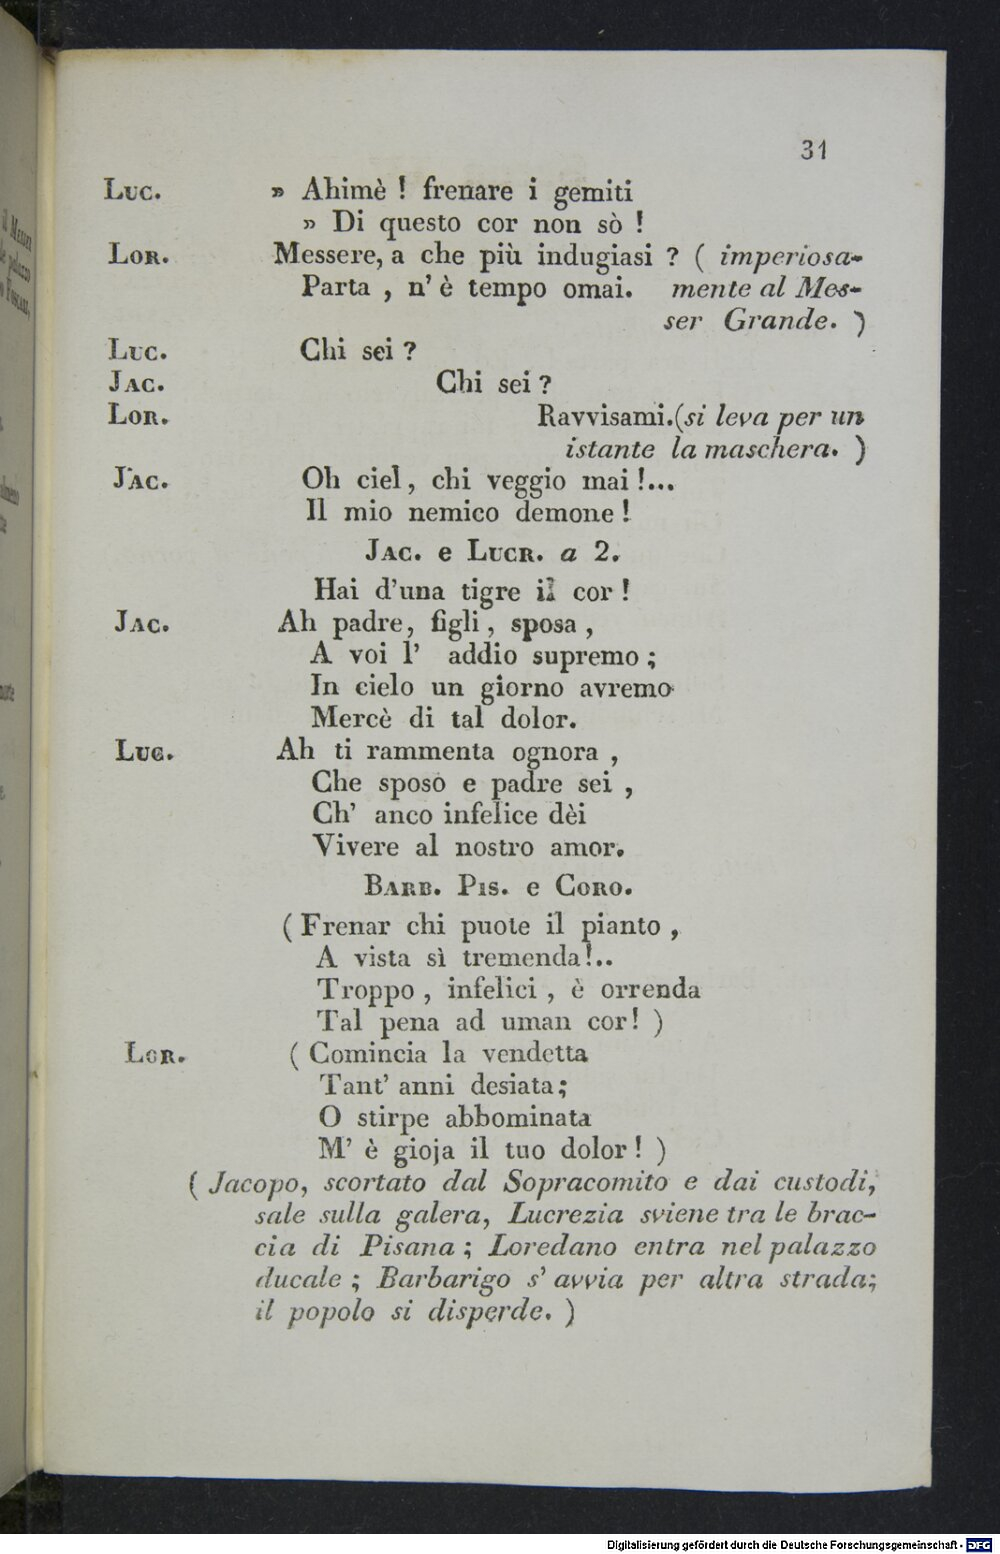 31
Luc. » Ahimè ! frenare i gemiti
» Di questo cor non sò !
Lor. Messere, a che più indugiasi ? ( imperiosa-
Parta , n' è tempo omai. mente al Mes-
ser Grande. )
Luc. Chi sei ?
Jac. Chi sei ?
Lor. Ravvisami. (si leva per un
istante la maschera. )
Jac. Oh ciel, chi veggio mai !...
Il mio nemico demone !
Jac. e Lucr. a 2.
Hai d'una tigre il cor !
Jac. Ah padre, figli, sposa ,
A voi l' addio supremo ;
In cielo un giorno avremo
Mercè di tal dolor.
Luc. Ah ti rammenta ognora ,
Che sposo e padre sei ,
Ch' anco infelice dèi
Vivere al nostro amor.
Barb. Pis. e Coro.
( Frenar chi puote il pianto ,
A vista sì tremenda!..
Troppo , infelici , è orrenda
Tal pena ad uman cor! )
Lor. ( Comincia la vendetta
Tant' anni desiata;
O stirpe abbominata
M' è gioja il tuo dolor ! )
( Jacopo, scortato dal Sopracomito e dai custodi,
sale sulla galera, Lucrezia sviene tra le brac-
cia di Pisana ; Loredano entra nel palazzo
ducale ; Barbarigo s' avvia per altra strada;
il popolo si disperde. )
il Messer
palazzo
Foscari,
Digitalisierung gefördert durch die Deutsche Forschungsgemeinschaft - DFG